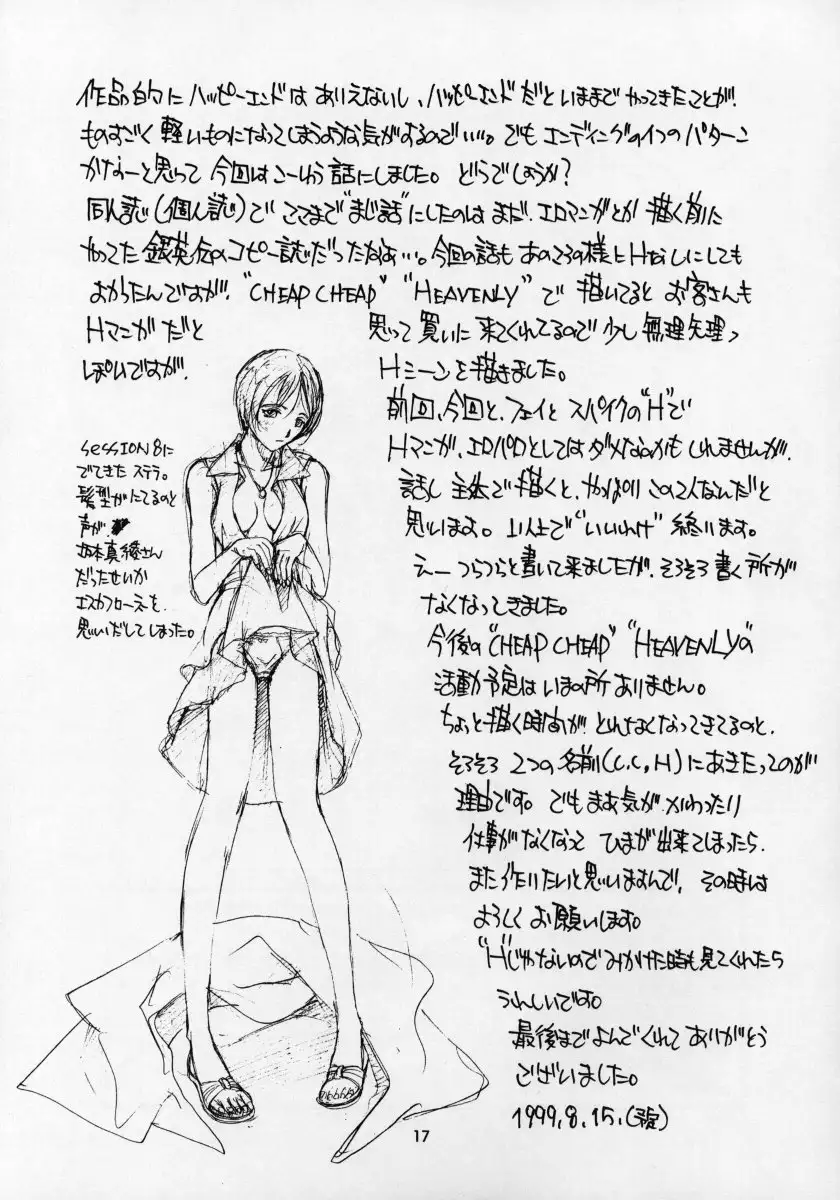 作品的にハッピーエンドはありえないし、ハッピーエンドだといままでやってきたことが、
ものすごく軽いものになってしまうような気がするので…。でもエンディングの1つのパターン
かなーと思って今回はこーいう話にしました。どうでしょうか?
同人誌(個人誌)でここまで"まじ話"にしたのはまだ、エロマンガとか描く前に
やってた銀英伝のコピー誌だったなぁ…。今回の話もあのころの様にHなしにしても
よかったんですが、"CHEAP CHEAP" "HEAVENLY"で描いてると お客さんも
Hマンガだと思って買いに来てくれてるので少し無理矢理っ
ぽいですが、Hシーンを描きました。
前回、今回と、フェイとスパイクの"H"で
Hマンガ、エロパロとしてはダメなのかもしれませんが、
話し主体で描くと、やっぱりこの2人なんだと
思います。以上で"いいわけ"終ります。
えーつらつらと書いて来ましたが、そろそろ書く所が
なくなってきました。
今後の"CHEAP CHEAP" "HEAVENLY"の
活動予定はいまの所ありません。
ちょっと描く時間が、とれなくなってきてるのと、
そろそろ2つの名前(C.C,H)にあきたってのが
理由です。でもまあ気が、かわったり
仕事がなくなって ひまが出来てしまったら、
また作りたいと思いますんで、その時は
よろしくお願いします。
"H"じゃないのでみかけた時も見てくれたら
うれしいです。
最後までよんでくれてありがとう
ございました。
1999.8.15.
SESSION8に
でてきたステラ。
髪型がにてるのと
声が、
坂本真綾さん
だったせいか
エスカフローネを
思いだしてしまった。
17